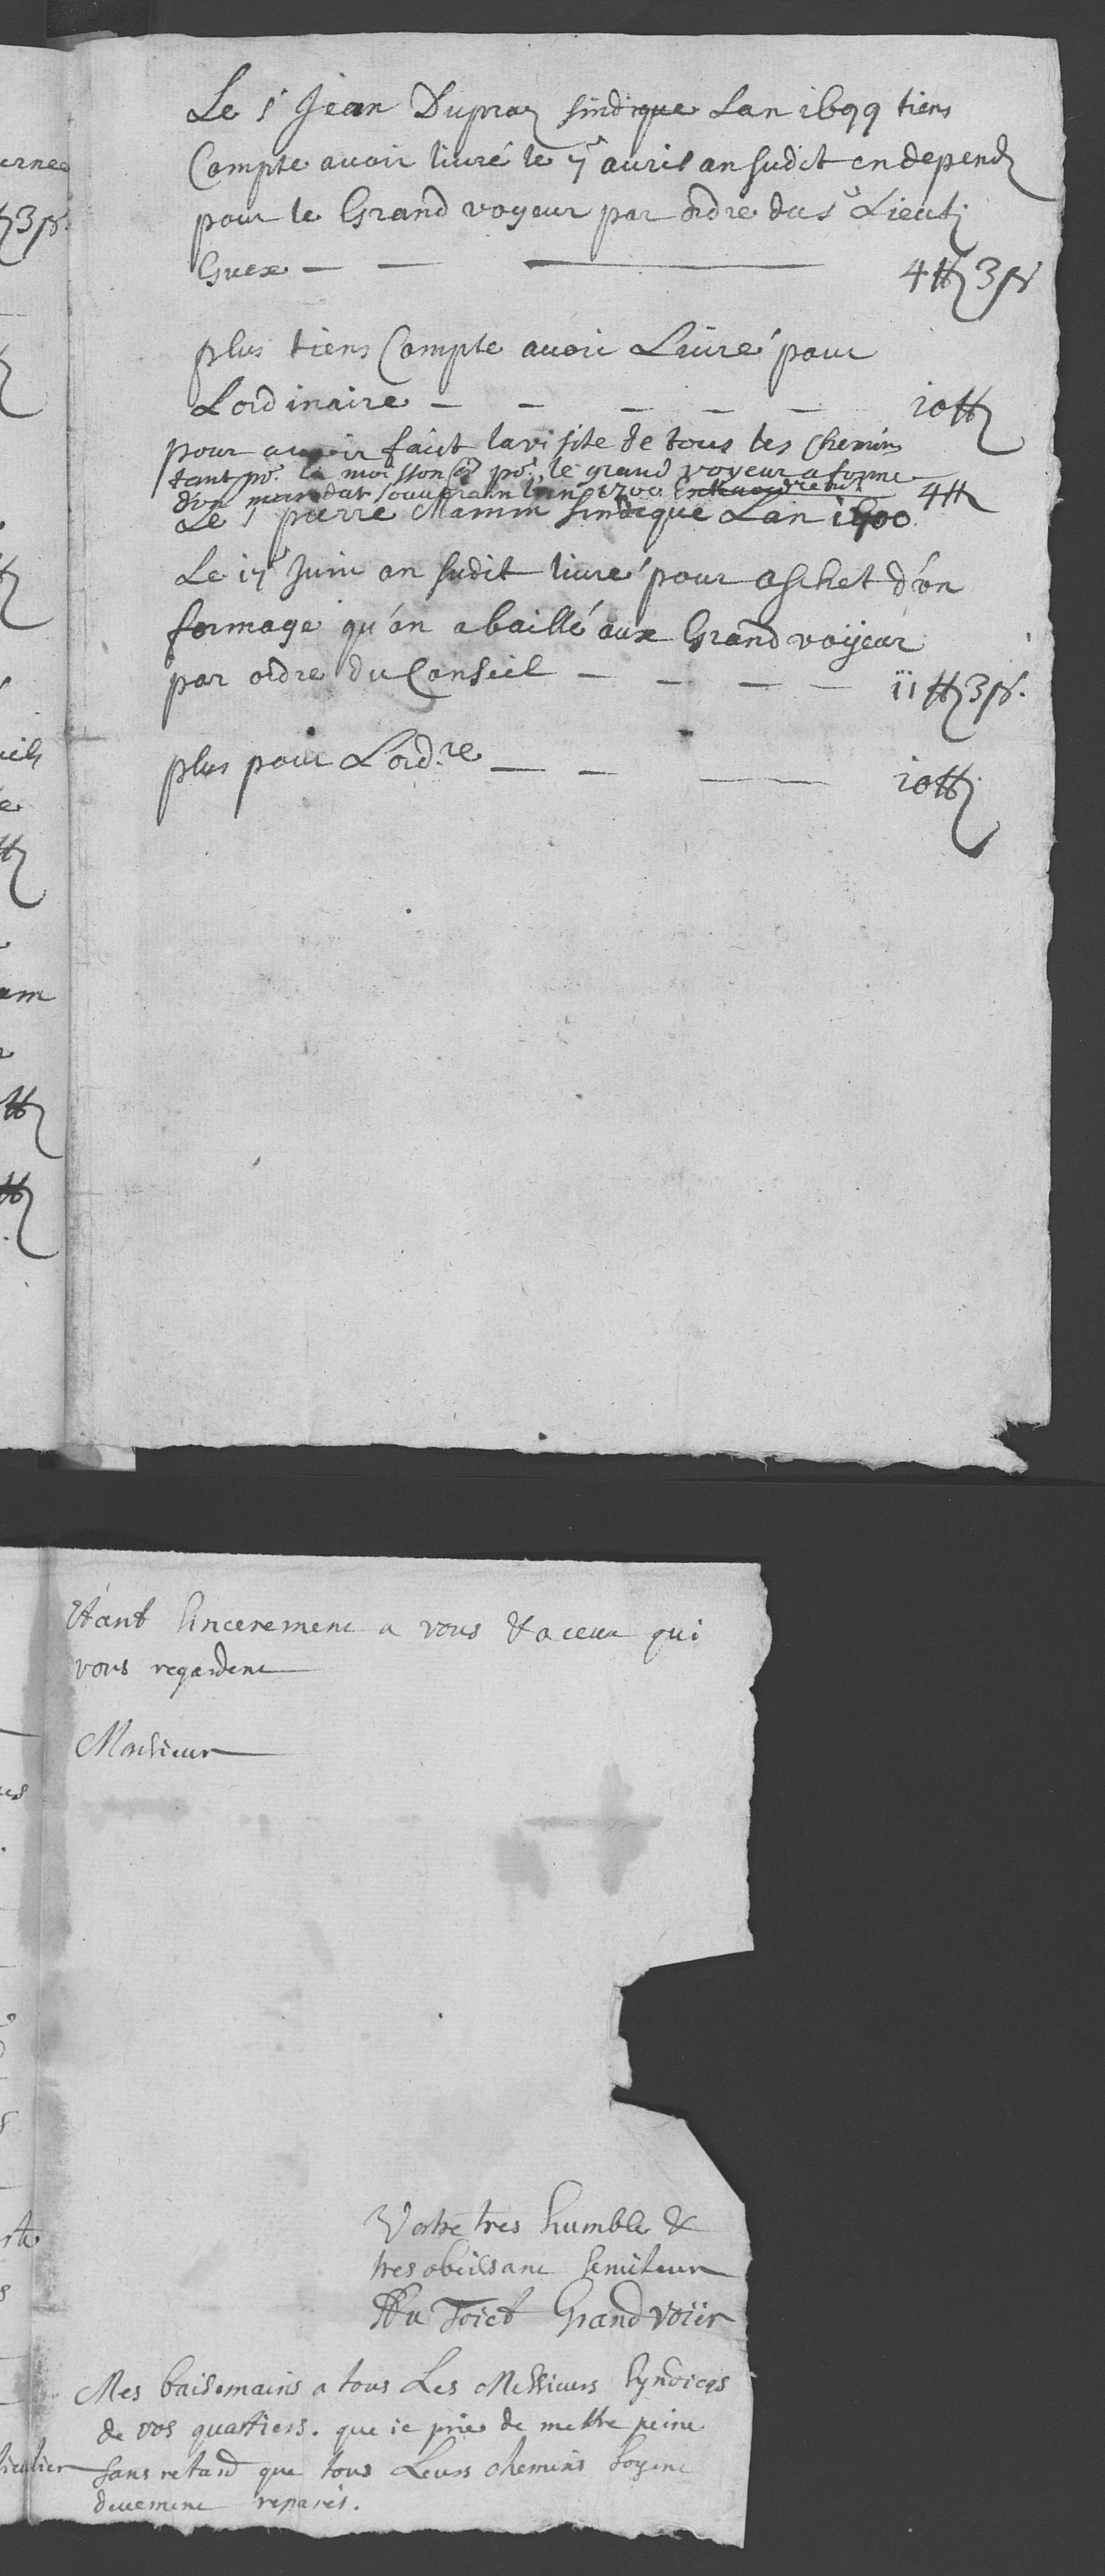 Le s.r Jean Dupraz sindique Lan 1699 tiens
Compte avoir livré le 7.e avril an sudit en depend
pour le Grand voyeur par ordre du s.r Lieut
Guex — — —— 4 ℔ 3 ß
plus tiens Compte avoir Livré pour
Lordinaire — — — — — 10 ℔
pour avoir faict la visite de tous les chemins
tant po.r la moisson & po.r le grand voyeur a forme
d'on mandat souverain Lan 1700 4 ℔
Le s.r pierre Mamin sindique Lan 1700
Le 17.e Juin an sudit livré pour aschet d'on
formage qu'on a baillé aux Grand voijeur
par ordre du Conseil — — — — 11 ℔ 3 ß.
plus pour Lord.re — — —— 10 ℔
etant sincerement a vous & a ceux qui
vous regardent
Monsieur
Vostre tres humble &
tres obeissant serviteur
Du Toict Grand Voiier
Mes baisemains a tous Les Messieurs Syndiqs
de vos quartiers. que ie prie de mettre peine
sans retard que tous Leurs chemins soyent
deuement reparés.